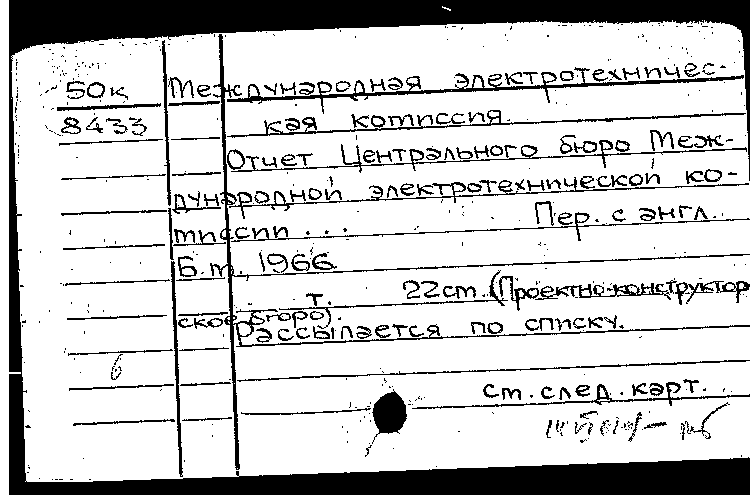 50к Международная электротехничес-
8433 кая комиссия.
Отчет Центрального бюро Меж-
дународной электротехнической ко-
миссии . . . Пер. с англ.
Б.м., 1966.
т. 22ст. (Проектно-конструктор
ское бюро).
Рассылается по списку.
6
см. след. карт.